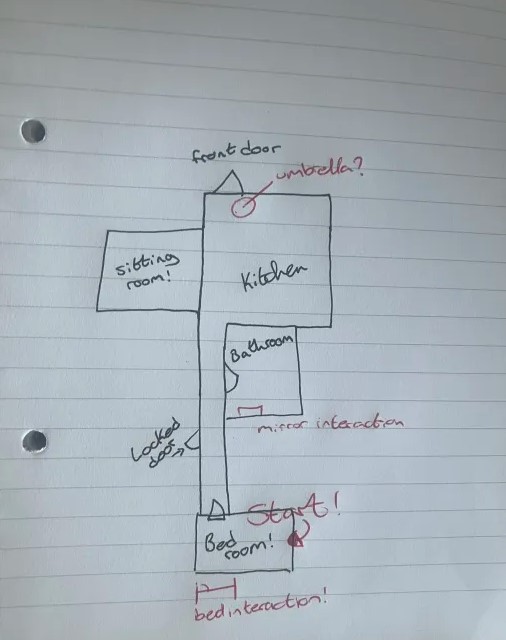 front door
umbrella?
sitting
room!
Kitchen
Bathroom
mirror interaction
Locked
door
Start!
Bed
room!
bed interaction!